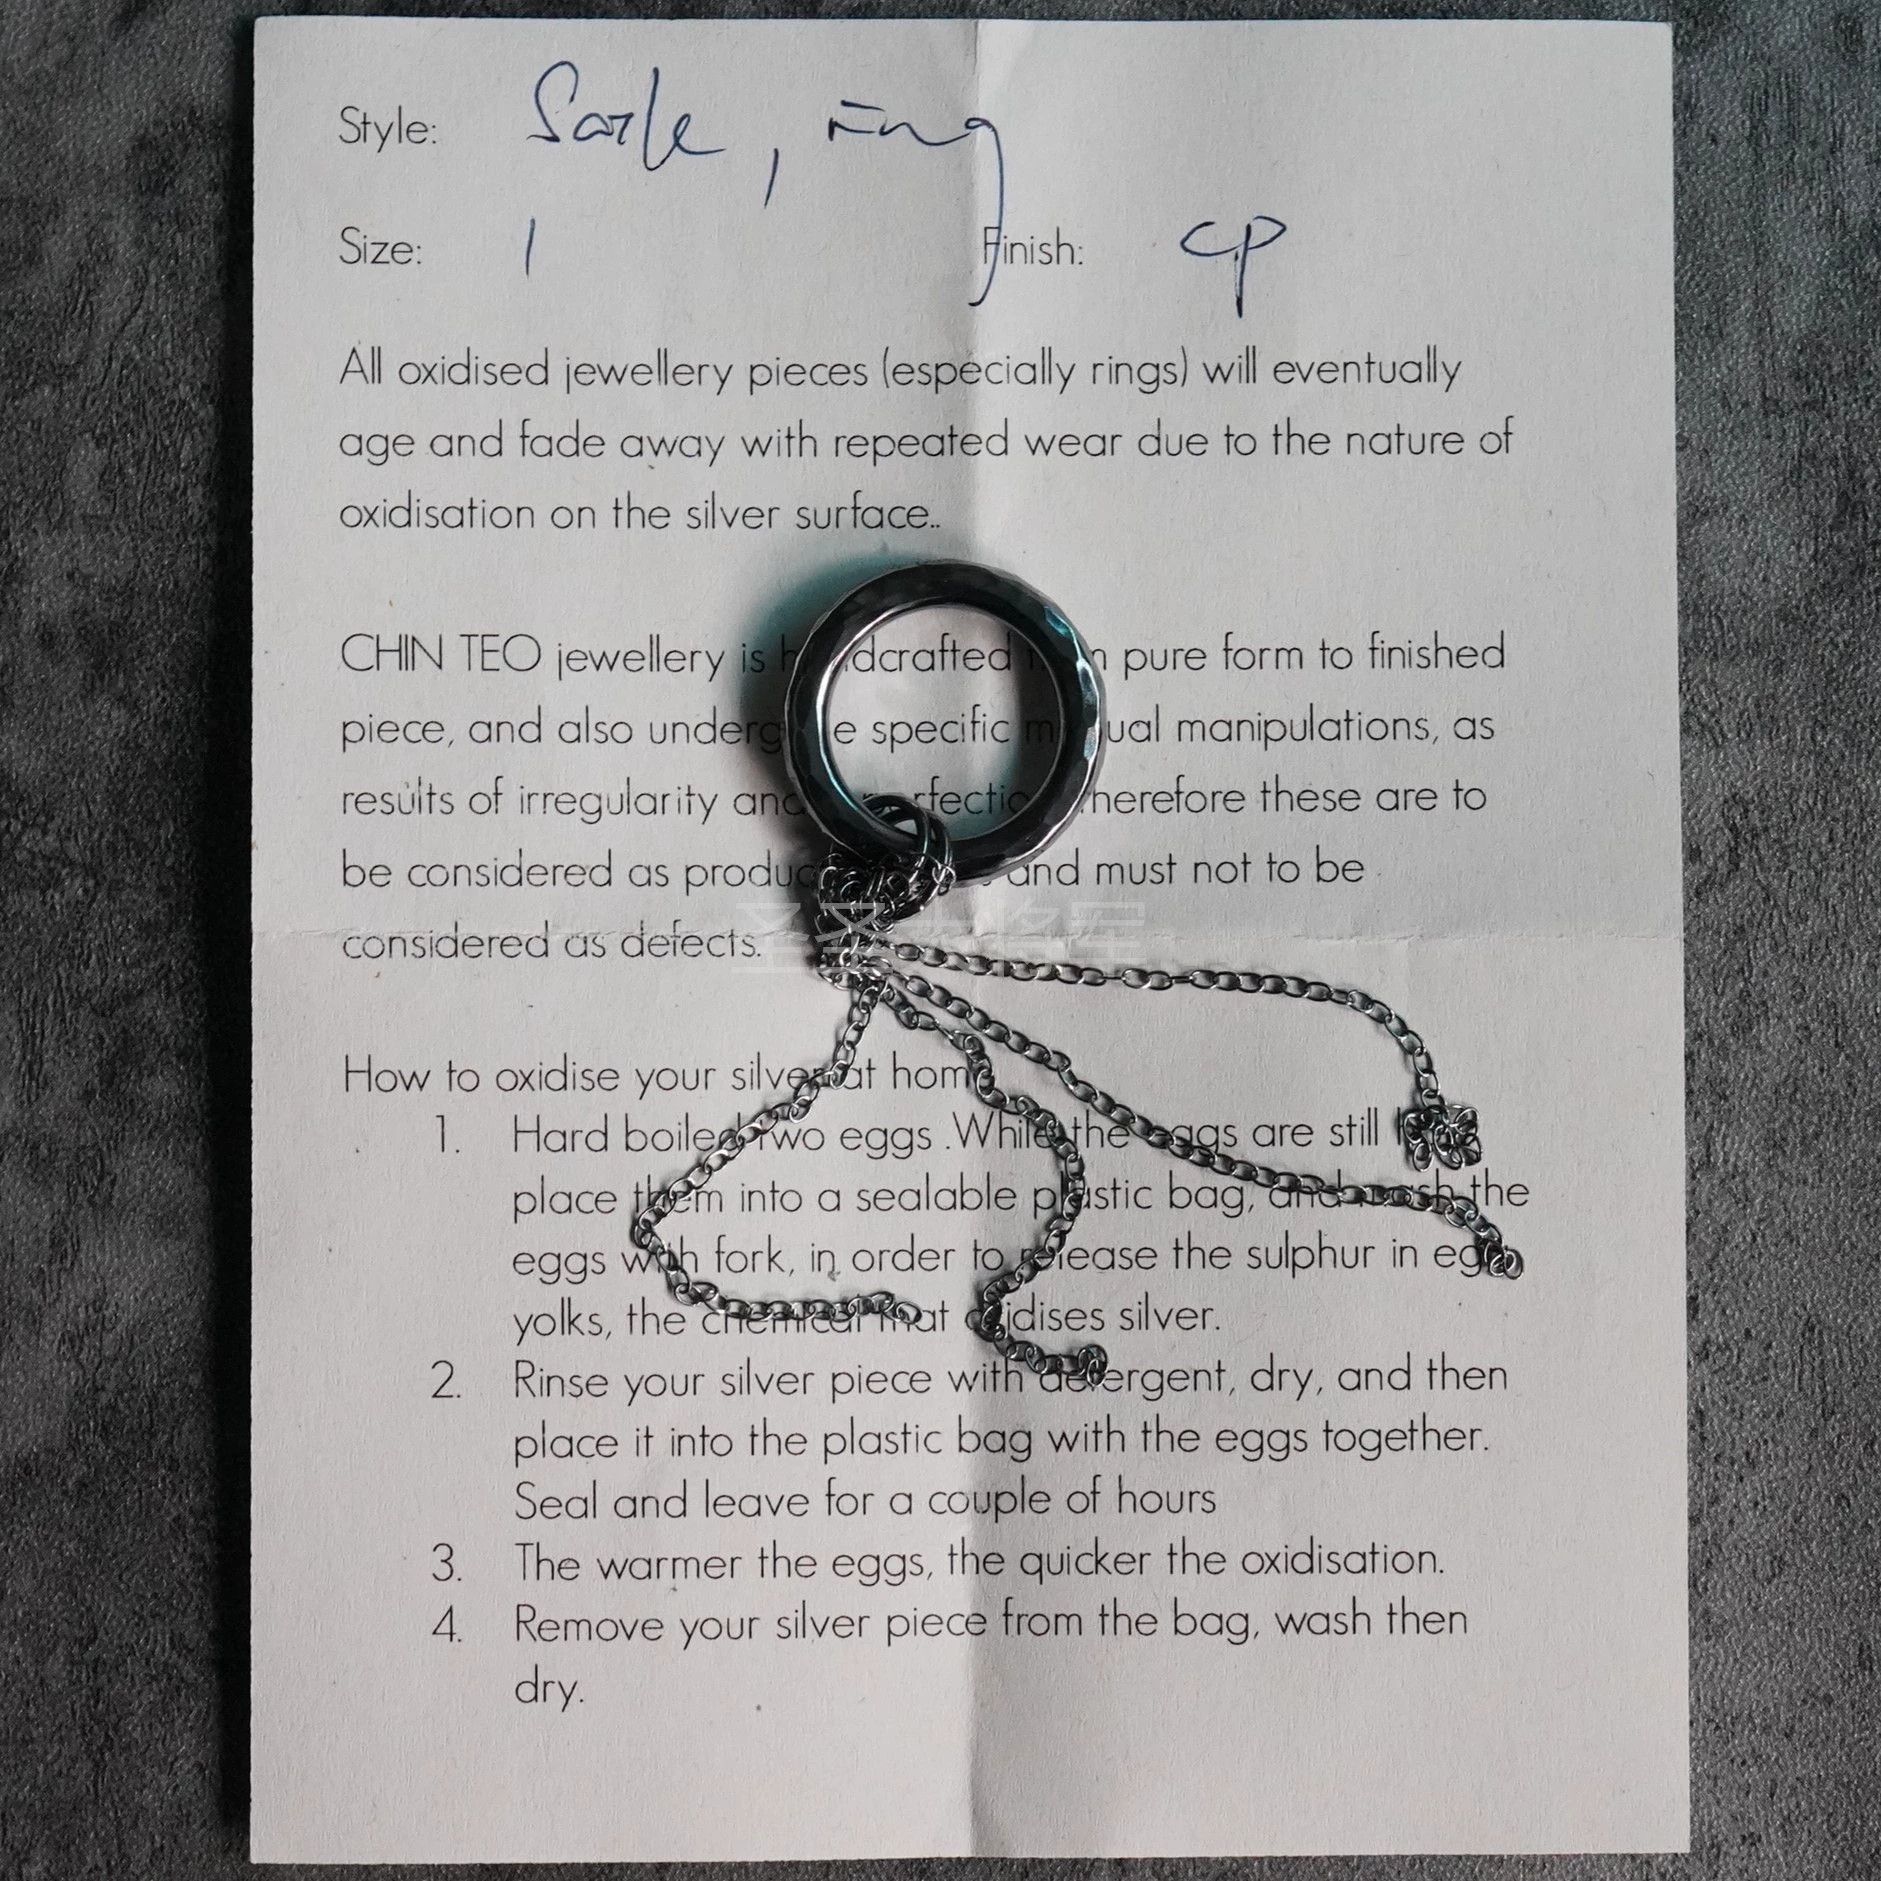 Style: ring
Size: 1 Finish: CP
All oxidised jewellery pieces (especially rings) will eventually
age and fade away with repeated wear due to the nature of
oxidisation on the silver surface..
CHIN TEO jewellery is handcrafted from pure form to finished
piece, and also undergone specific manual manipulations, as
results of irregularity and Therefore these are to
be considered as and must not to be
considered as defects.
圣圣大将军
How to oxidise your silver at home
1. Hard boiled two eggs .While the eggs are still
place them into a sealable plastic bag, and mash the
eggs with fork, in order to release the sulphur in egg
yolks, the chemical that oxidises silver.
2. Rinse your silver piece with detergent, dry, and then
place it into the plastic bag with the eggs together.
Seal and leave for a couple of hours
3. The warmer the eggs, the quicker the oxidisation.
4. Remove your silver piece from the bag, wash then
dry.